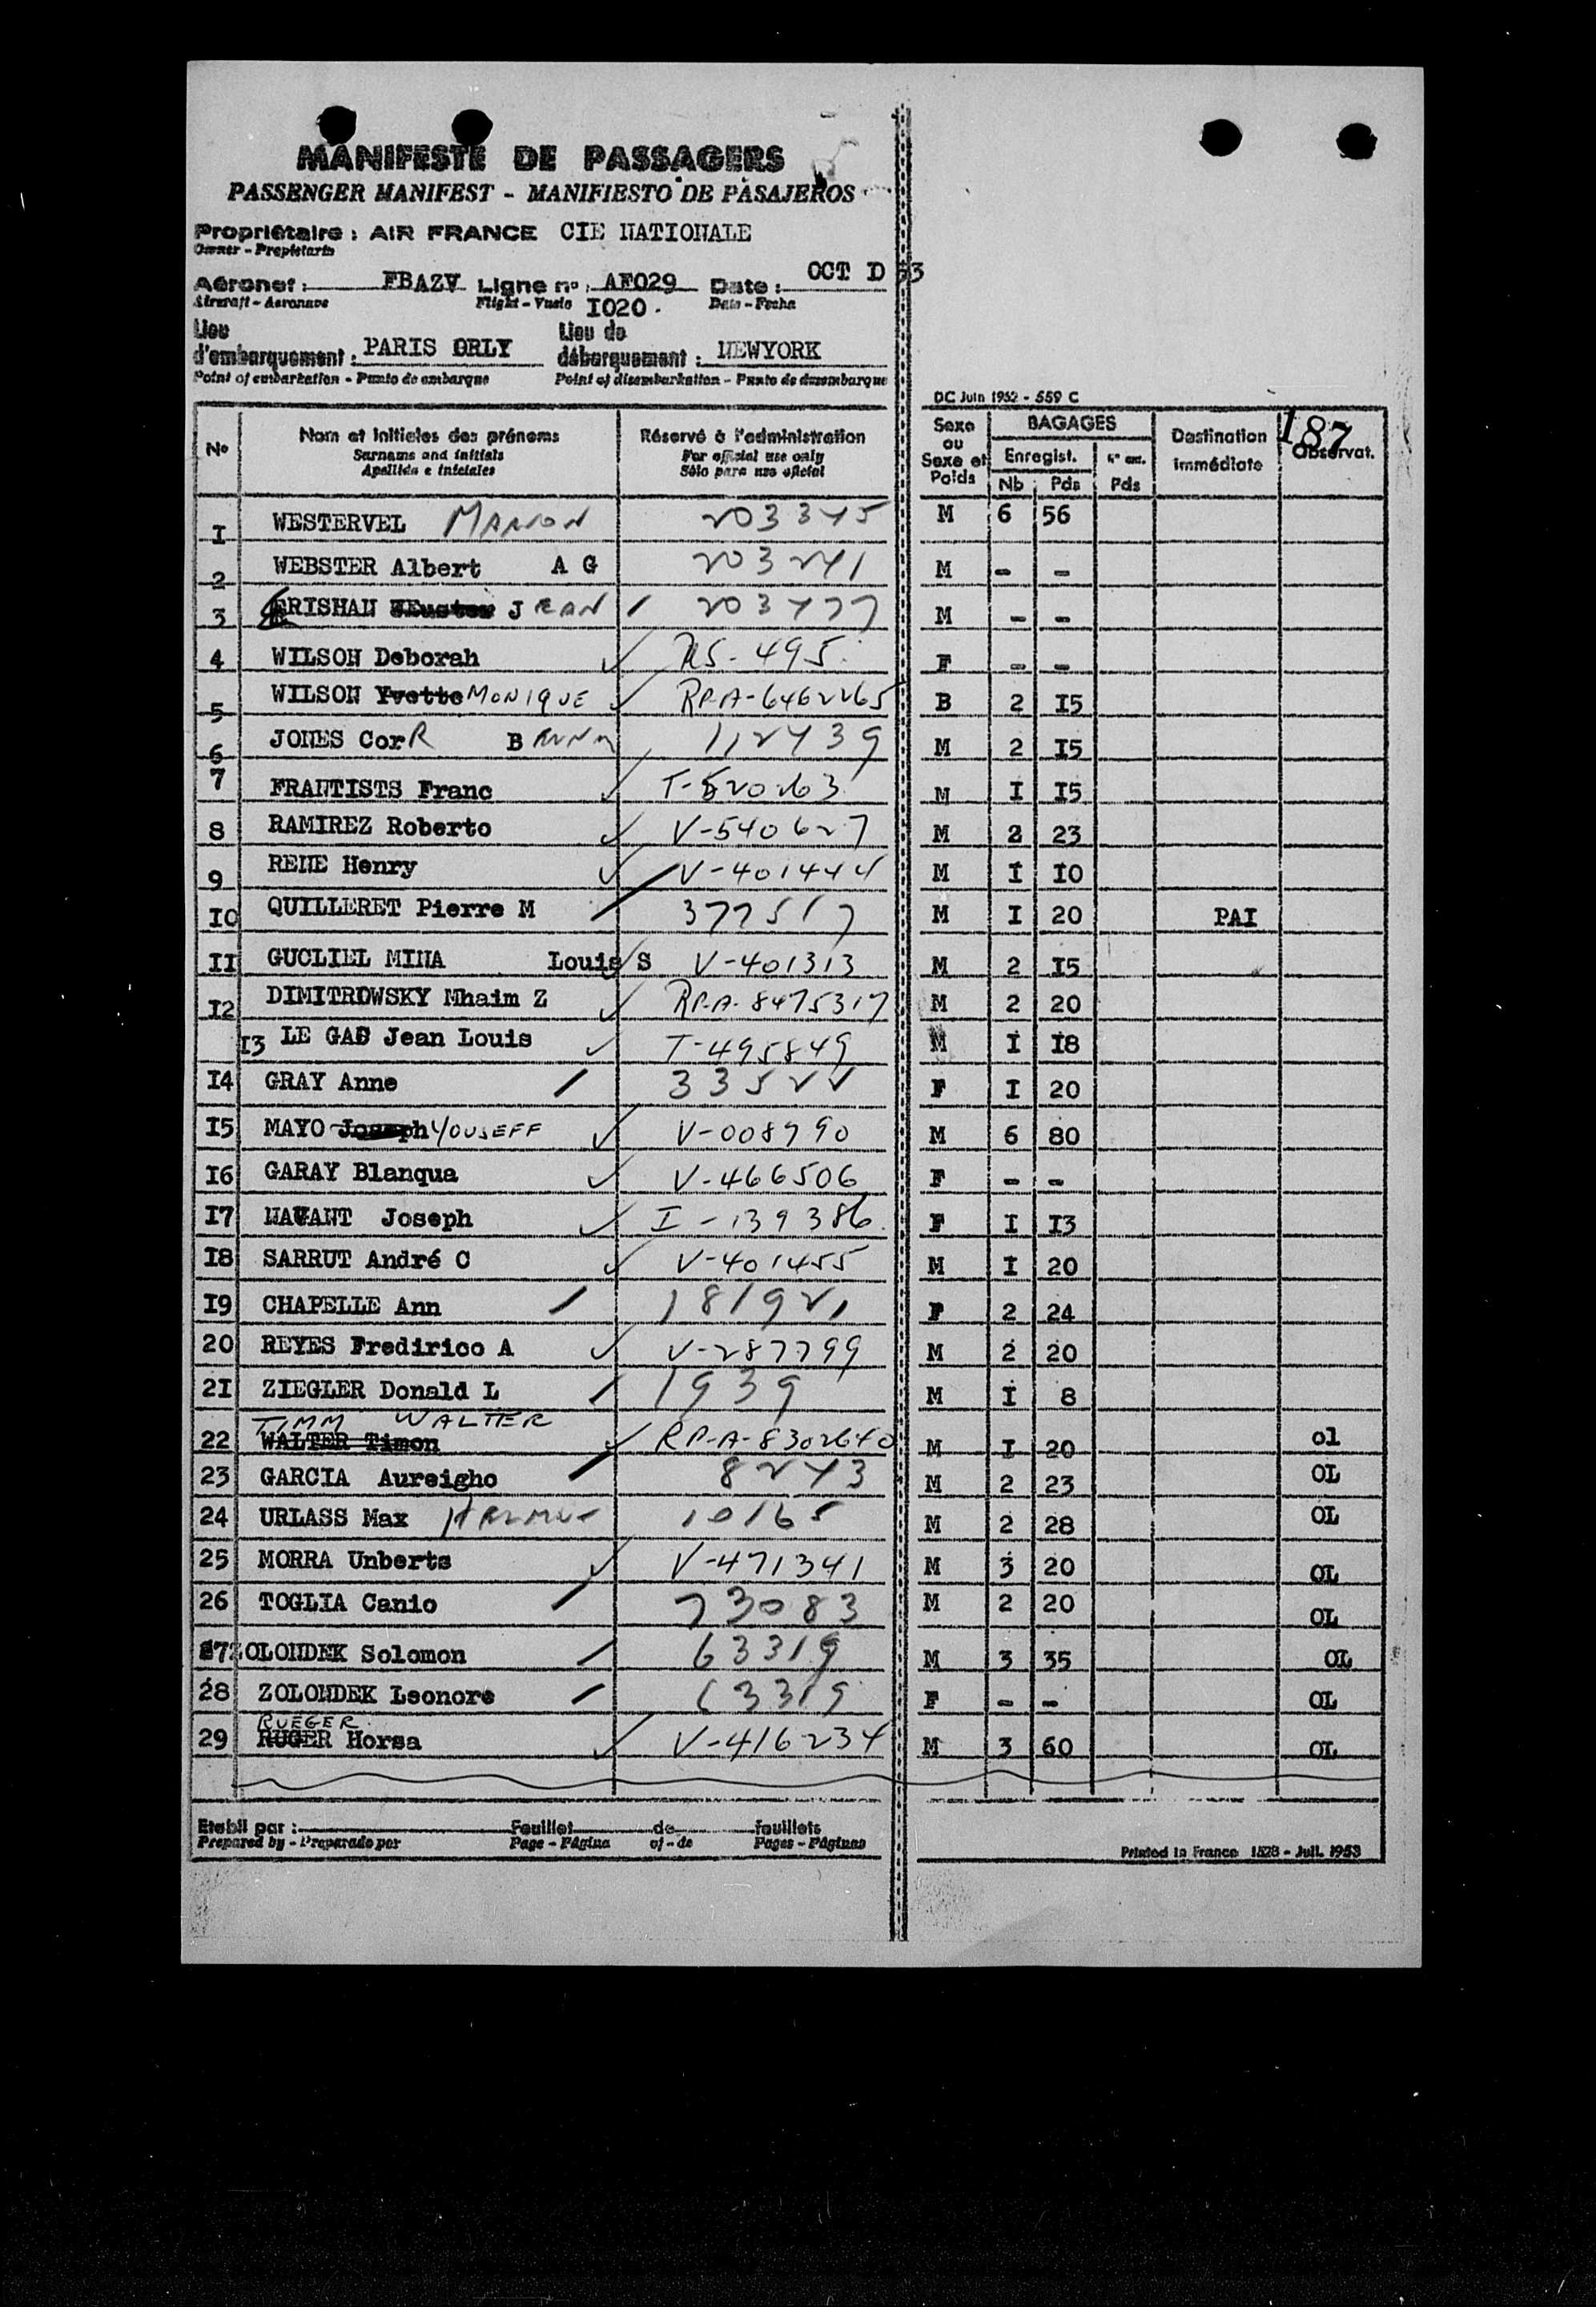 MANIFESTE DE PASSAGERS
PASSENGER MANIFEST - MANIFIESTO DE PASAJEROS
Propriétaire : AIR FRANCE CIE NATIONALE
Owner - Propietario
Aéronef : FBAZV Ligne n° : AF029 Date : OCT D 53
Aircraft - Aeronave Flight - Vuelo I020. Date - Fecha
Lieu d'embarquement : PARIS ORLY Lieu de débarquement : NEWYORK
Point of embarkation - Punto de embarque Point of disembarkation - Punto de desembarque
DC Juin 1952 - 559 C
187
N° Nom et initiales des prénoms Réservé à l'administration Sexe ou Sexe et Poids BAGAGES Destination immédiate Observat.
Surname and initials For official use only Enregist. N° enr.
Apellido e iniciales Sólo para uso oficial Nb Pds Pds
I WESTERVEL MARION 203345 M 6 56
2 WEBSTER Albert A G 203241 M - -
3 ERISHAN JEAN 203477 M - -
4 WILSON Deborah RS-495 F - -
5 WILSON Yvette MONIQUE RP-A-6462265 B 2 I5
6 JONES CorR B 112439 M 2 I5
7 FRANTISTS Franc T-520263 M I I5
8 RAMIREZ Roberto V-540627 M 2 23
9 RENE Henry V-401444 M I I0
I0 QUILLERET Pierre M 377517 M I 20 PAI
II GUCLIEL MINA Louis S V-401313 M 2 I5
I2 DIMITROWSKY Mhaim Z RP-A-8475317 M 2 20
I3 LE GAD Jean Louis T-495849 M I I8
I4 GRAY Anne 33522 F I 20
I5 MAYO Joseph YOUSEFF V-008790 M 6 80
I6 GARAY Blanqua V-466506 F - -
I7 NAVANT Joseph I-139386 F I I3
I8 SARRUT André C V-401455 M I 20
I9 CHAPELLE Ann 181921 F 2 24
20 REYES Fredirico A V-287799 M 2 20
2I ZIEGLER Donald L 1939 M I 8
TIMM WALTER
22 WALTER Timon RP-A-8302640 M I 20 ol
23 GARCIA Aureigho 8243 M 2 23 OL
24 URLASS Max 10165 M 2 28 OL
25 MORRA Unberts V-471341 M 3 20 OL
26 TOGLIA Canio 73083 M 2 20 OL
27 ZOLONDEK Solomon 63319 M 3 35 OL
28 ZOLONDEK Leonore 63319 F - - OL
RUEGER
29 RUGER Horsa V-416234 M 3 60 OL
Etabli par : Feuillet de feuillets
Prepared by - Preparado por Page - Página of - de Pages - Páginas
Printed in France 1528 - Juil. 1953